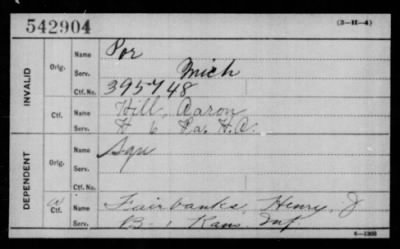 542904 (3-H-4)
INVALID
Orig. Name Por
Serv. Mich
Ctf. No. 395748
Ctf. Name Hill, Aaron
Serv. H 6 Pa. H.A.
DEPENDENT
Orig. Name
Serv.
Ctf. Name Fairbanks, Henry J
Serv. B-1 Kans Inf
6-1380